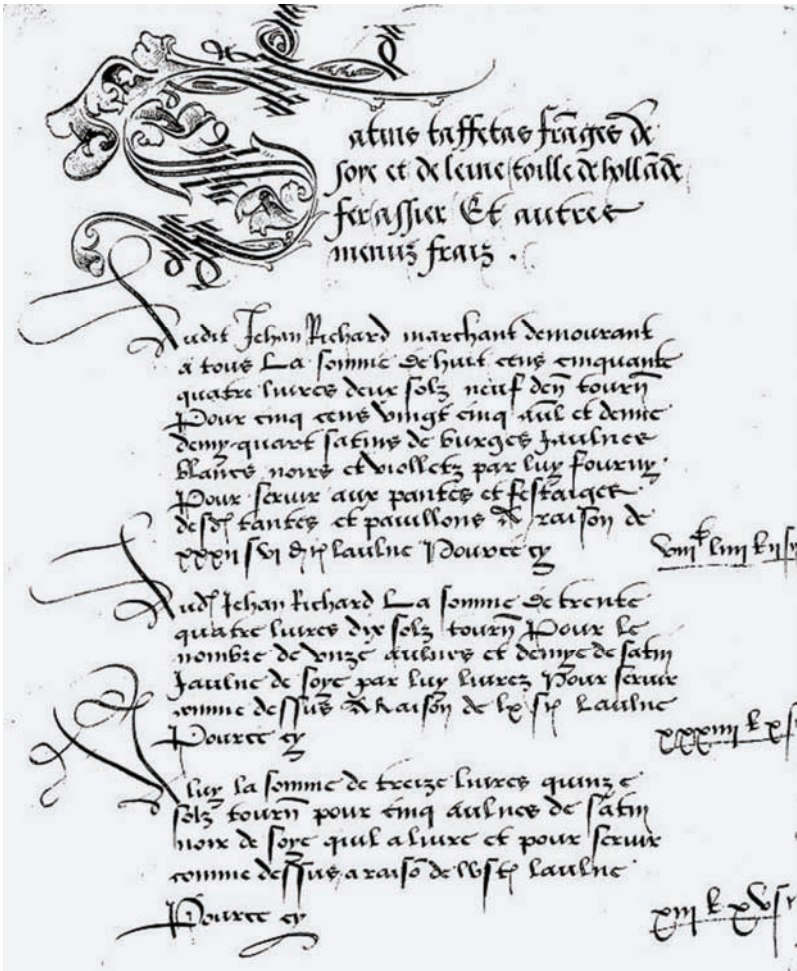 Satins taffetas frāges de
soye et de leine toille de hollāde
fer assier Et autres
menuz fraiz .
Audit Jehan Richard marchant demourant
a tous La somme de huit cens cinquante
quatre livres deux solz neuf den̄ tourn̄
Pour cinq cens vingt cinq aul̄ et demie
demy quart satins de burges Jaulnes
blancs noirs et violletz par luy fourny
Pour servir aux pantes et festaiges
desd tantes et pavillons A raison de
xxxii s vi d laulne Pource cy
viii liiii
Aud Jehan Richard La somme de trente
quatre livres dix solz tourn̄ Pour le
nombre de unze aulnes et demye de satin
Jaulne de soye par luy livrez Pour servir
comme dessus A Raison de lx s laulne
Pource cy
xxxiiii x s
A luy la somme de treize livres quinze
solz tourn̄ pour cinq aulnes de satin
noir de soye quil a livré et pour servir
comme dessus a raisō de lv s laulne
Pource cy
xiii xv s